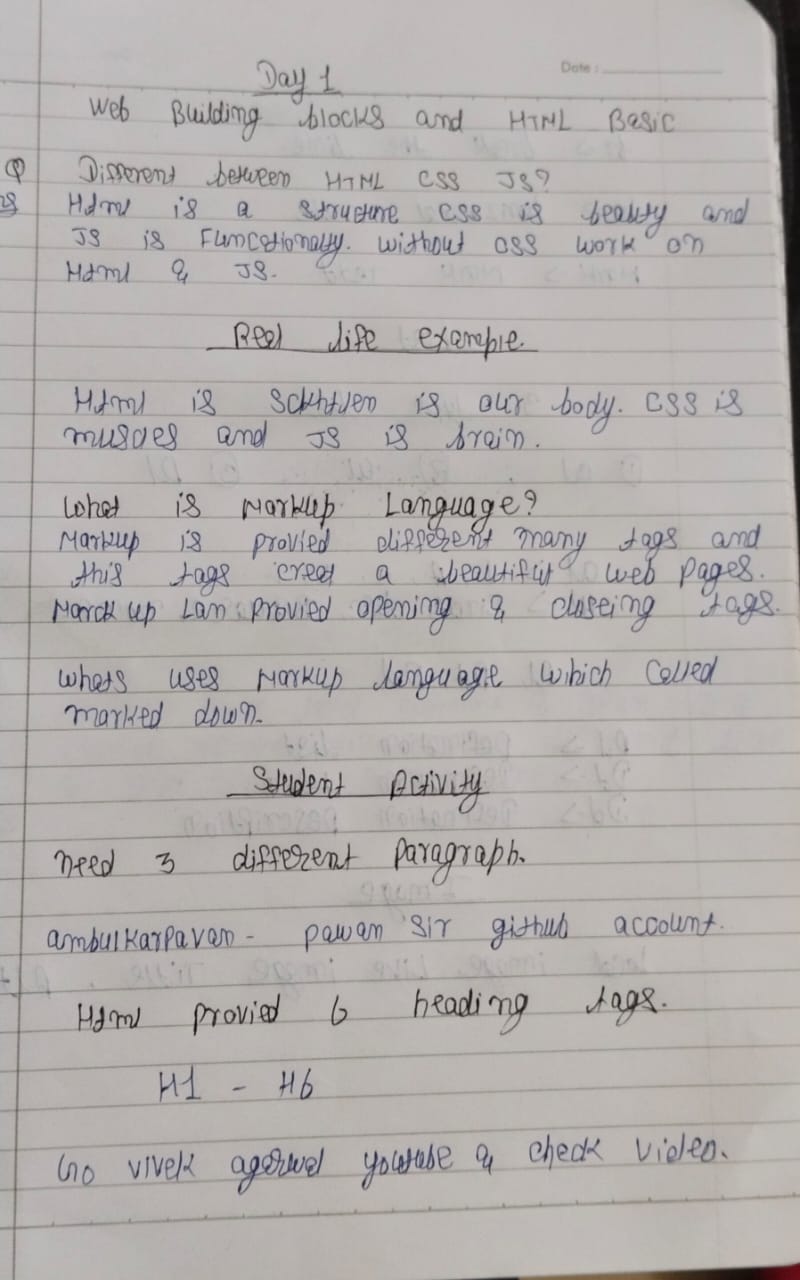 Date :
Day 1
Web Building blocks and HTML Basic
Q Different between HTML CSS JS?
Html is a structure CSS is beauty and
JS is Functionally. without css work on
Html & JS.
Reel life example.
Html is is our body. CSS is
musoes and JS is brain.
What is Markup Language?
Markup is provied different many tags and
this tags creet a beautiful web pages.
Marckup Lan provied opening & closeing tags.
whats uses Markup language which called
marked down.
Student Activity
need 3 different paragraph.
ambulkarpavan - pawan sir github account.
Html provied 6 heading tags.
H1 - H6
Go vivek agerwel youtube & check video.